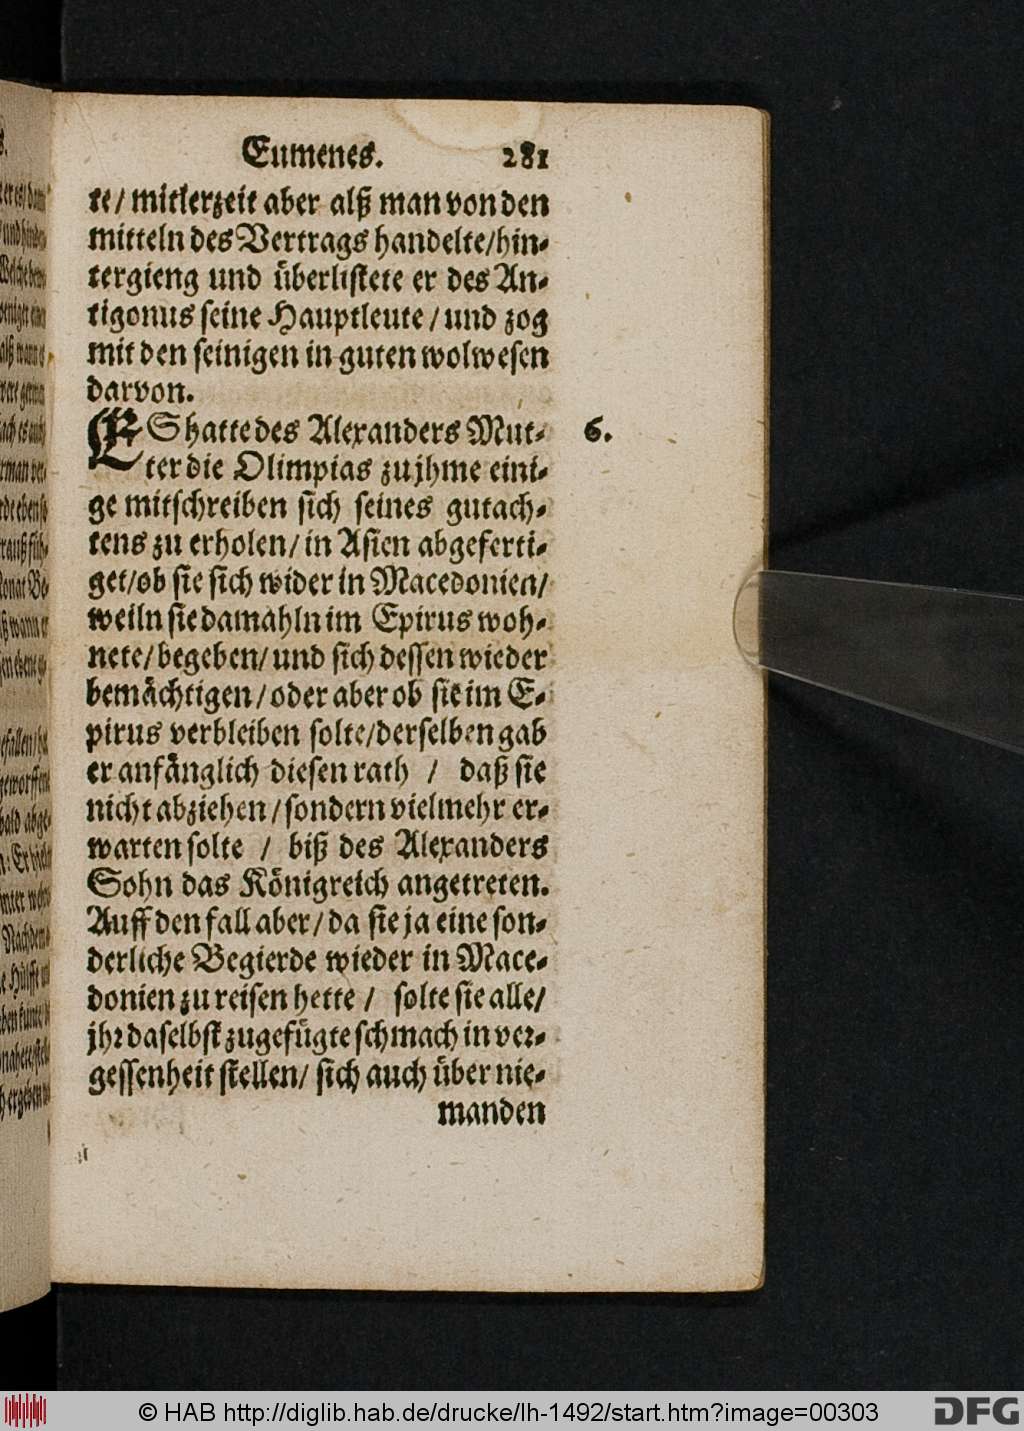 Eumenes. 281
te/ mitlerzeit aber alß man von den
mitteln des Vertrags handelte/hin-
tergieng und überlistete er des An-
tigonus seine Hauptleute / und zog
mit den seinigen in guten wolwesen
darvon.
ES hatte des Alexanders Mut- 6.
ter die Olimpias zu jhme eini-
ge mitschreiben sich seines gutach-
tens zu erholen/ in Asien abgeferti-
get/ob sie sich wider in Macedonien/
weiln sie damahln im Epirus woh-
nete/ begeben/ und sich dessen wieder
bemächtigen / oder aber ob sie im E-
pirus verbleiben solte/derselben gab
er anfänglich diesen rath / daß sie
nicht abziehen / sondern vielmehr er-
warten solte / biß des Alexanders
Sohn das Königreich angetreten.
Auff den fall aber/ da sie ja eine son-
derliche Begierde wieder in Mace-
donien zu reisen hette / solte sie alle/
jhr daselbst zugefügte schmach in ver-
gessenheit stellen/ sich auch über nie-
manden
© HAB http://diglib.hab.de/drucke/lh-1492/start.htm?image=00303
DFG